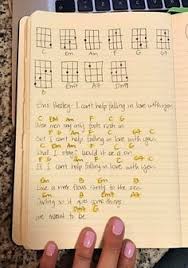 C Em Am F G G7
B A#7 Dm7
Elvis Presley: I can't help falling in love with you
C Em Am F C G
Wise men say only fools rush in
F G Am F C G7 C
But I can't help falling in love with you
C Em Am F C G
Shall I stay? would it be a sin
F G Am F C G7 C
If I can't help falling in love with you
Em B Em B
Like a river flows surely to the sea
Em B Em
Darling so it goes some things
Dm7 G
are meant to be